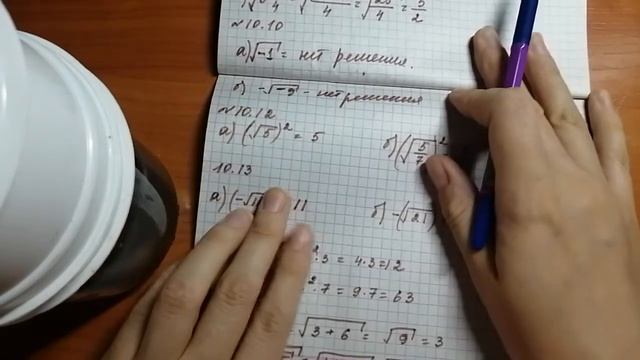 = √25/4 = 5/2
№10.10
а) √-1 = нет решения.
б) -√-9 - нет решения
№10.12
а) (√5)² = 5 б) (√5/7)²
10.13
а) (-√1 11 б) -(√21)
².3 = 4.3 = 12
².7 = 9.7 = 63
√3+6 = √9 = 3